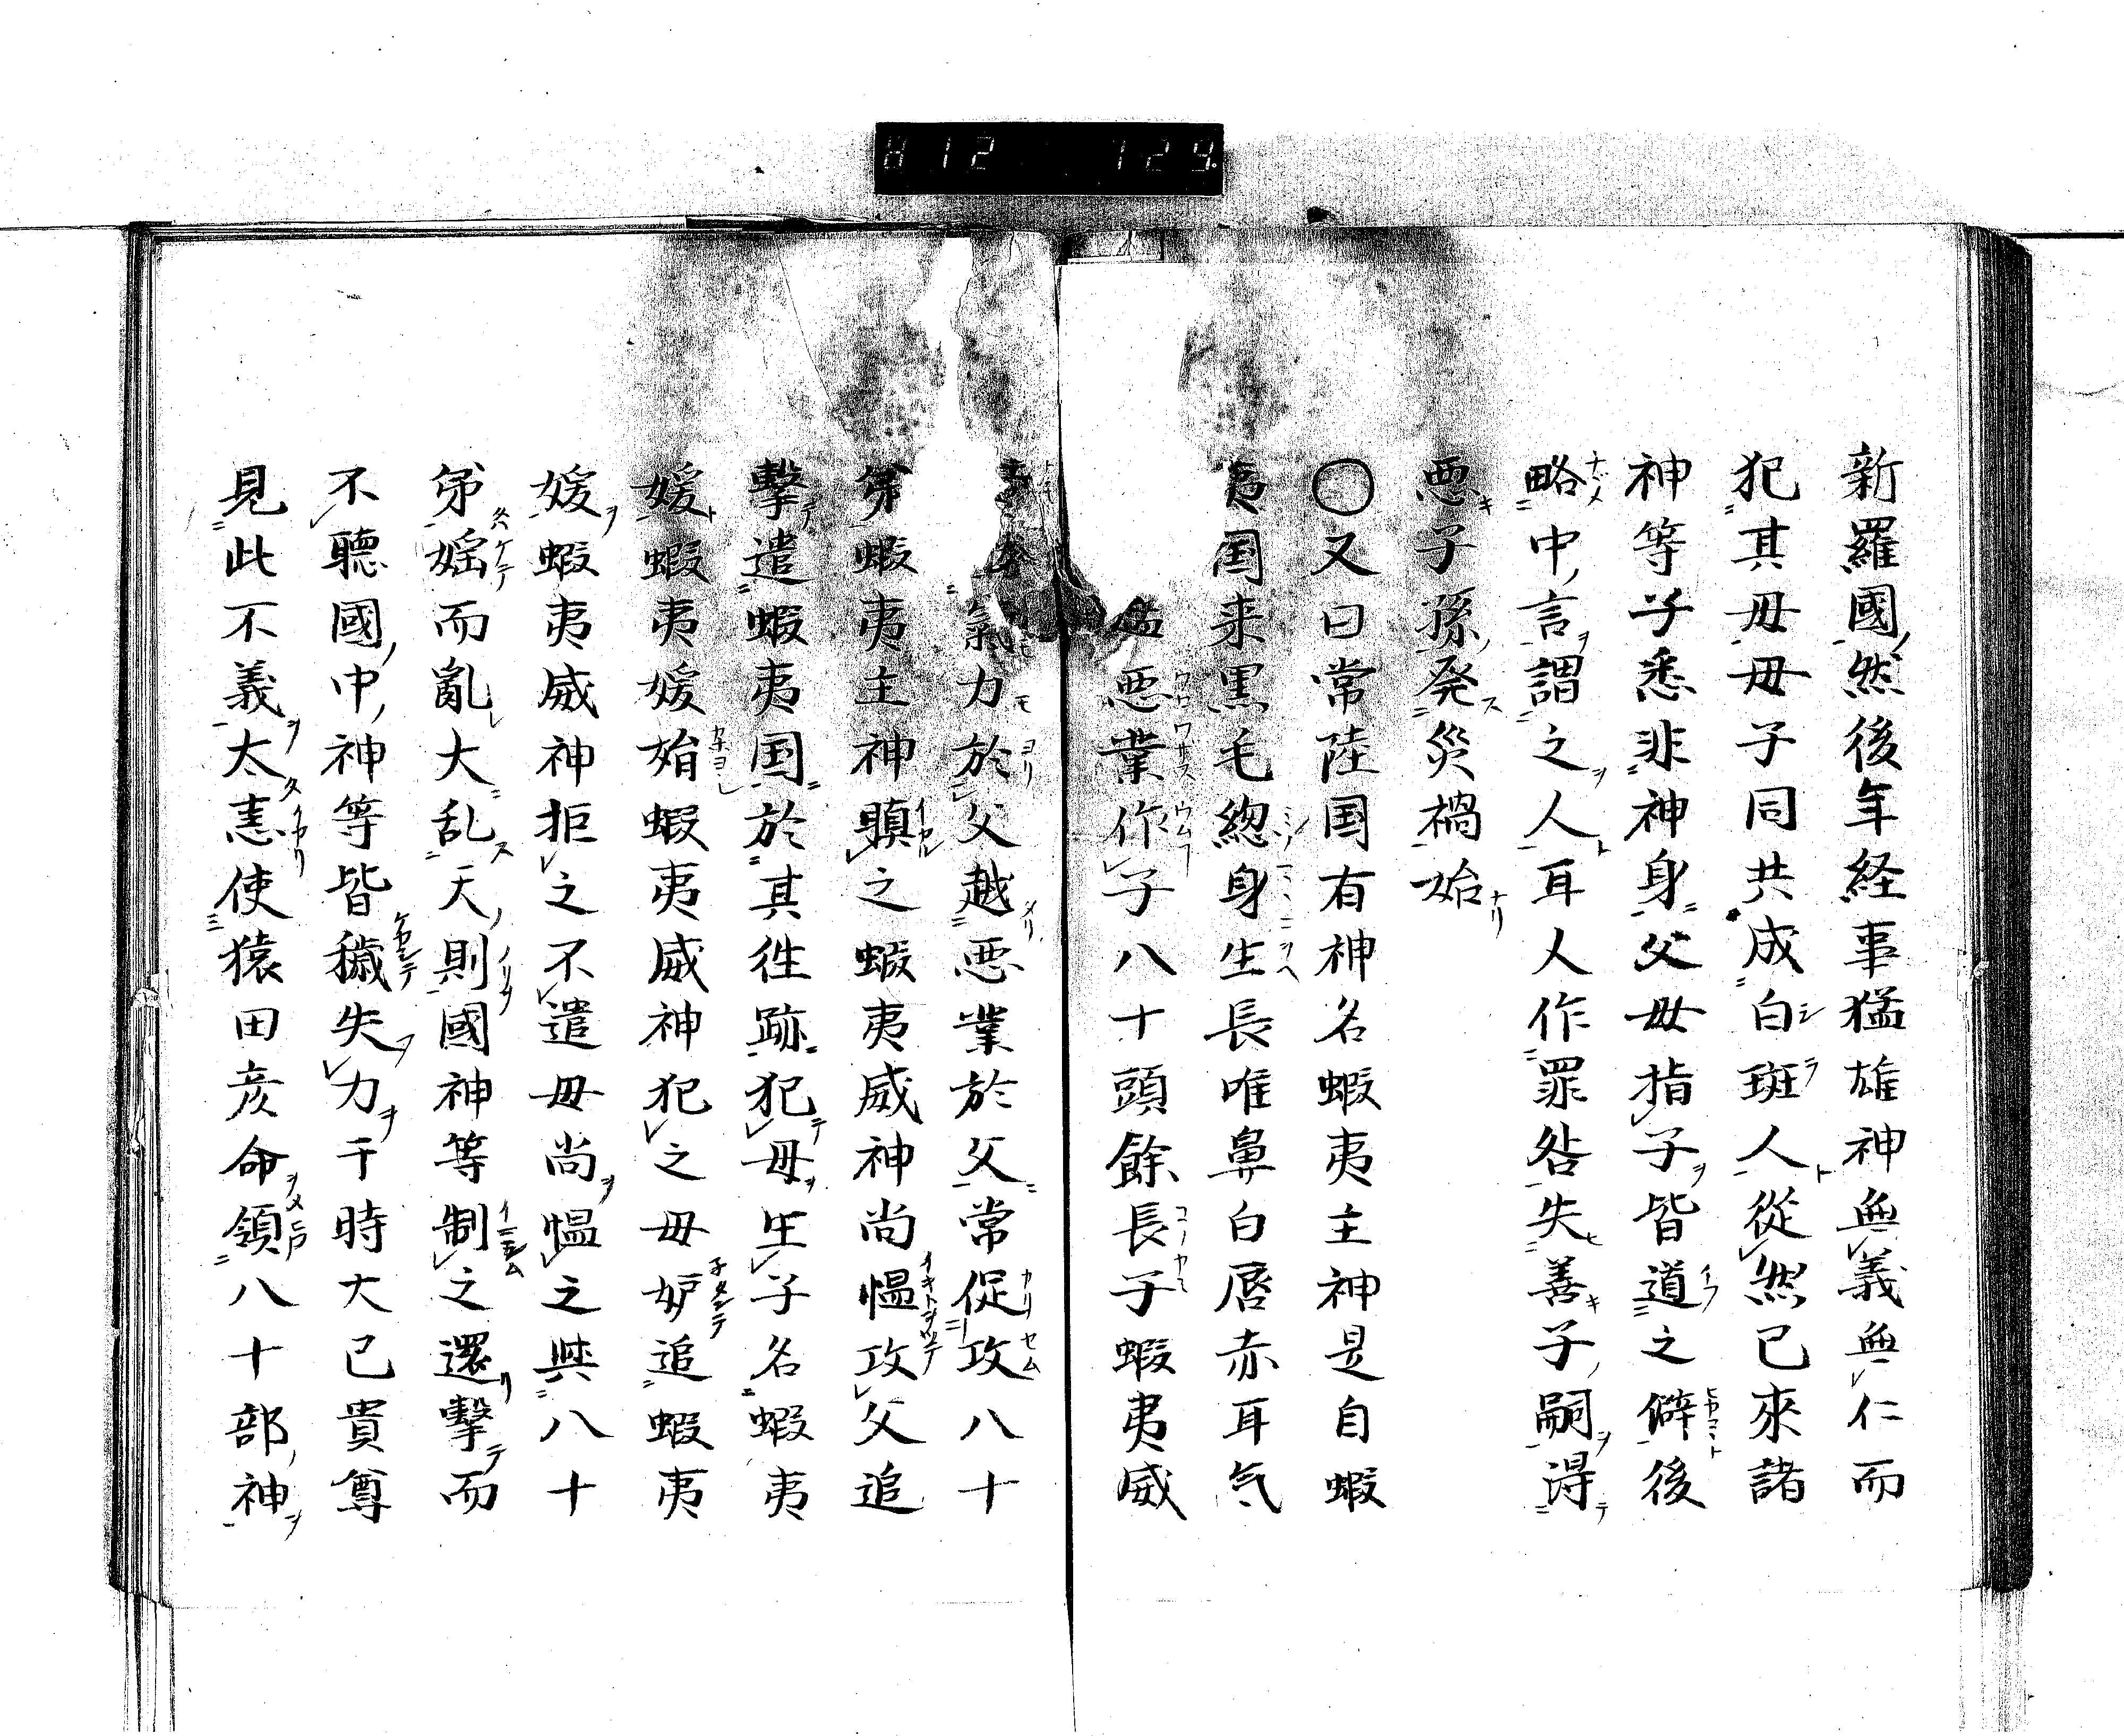 812 129
新羅國然後年経事猛雄神無義無仁而
犯其母母子同共成白斑人從然已來諸
神等子悉非神身父母指子皆道之僻後
略中言謂之人耳人作罪咎失善子嗣得
悪子孫発災禍始
〇又曰常陸国有神名蝦夷主神是自蝦
夷国来黒毛緫身生長唯鼻白唇赤耳気
悪業作子八十頭餘長子蝦夷威
氣力於父越悪業於父常促攻八十
弟蝦夷主神瞋之蝦夷威神尚愠攻父追
擊遣蝦夷国於其徃跡犯母生子名蝦夷
媛蝦夷媛始蝦夷威神犯之母妒追蝦夷
媛蝦夷威神拒之不遣母尚愠之與八十
弟婬而亂大乱天則國神等制之還擊而
不聽國中神等皆穢失力于時大己貴尊
見此不義太恚使猿田彦命領八十部神